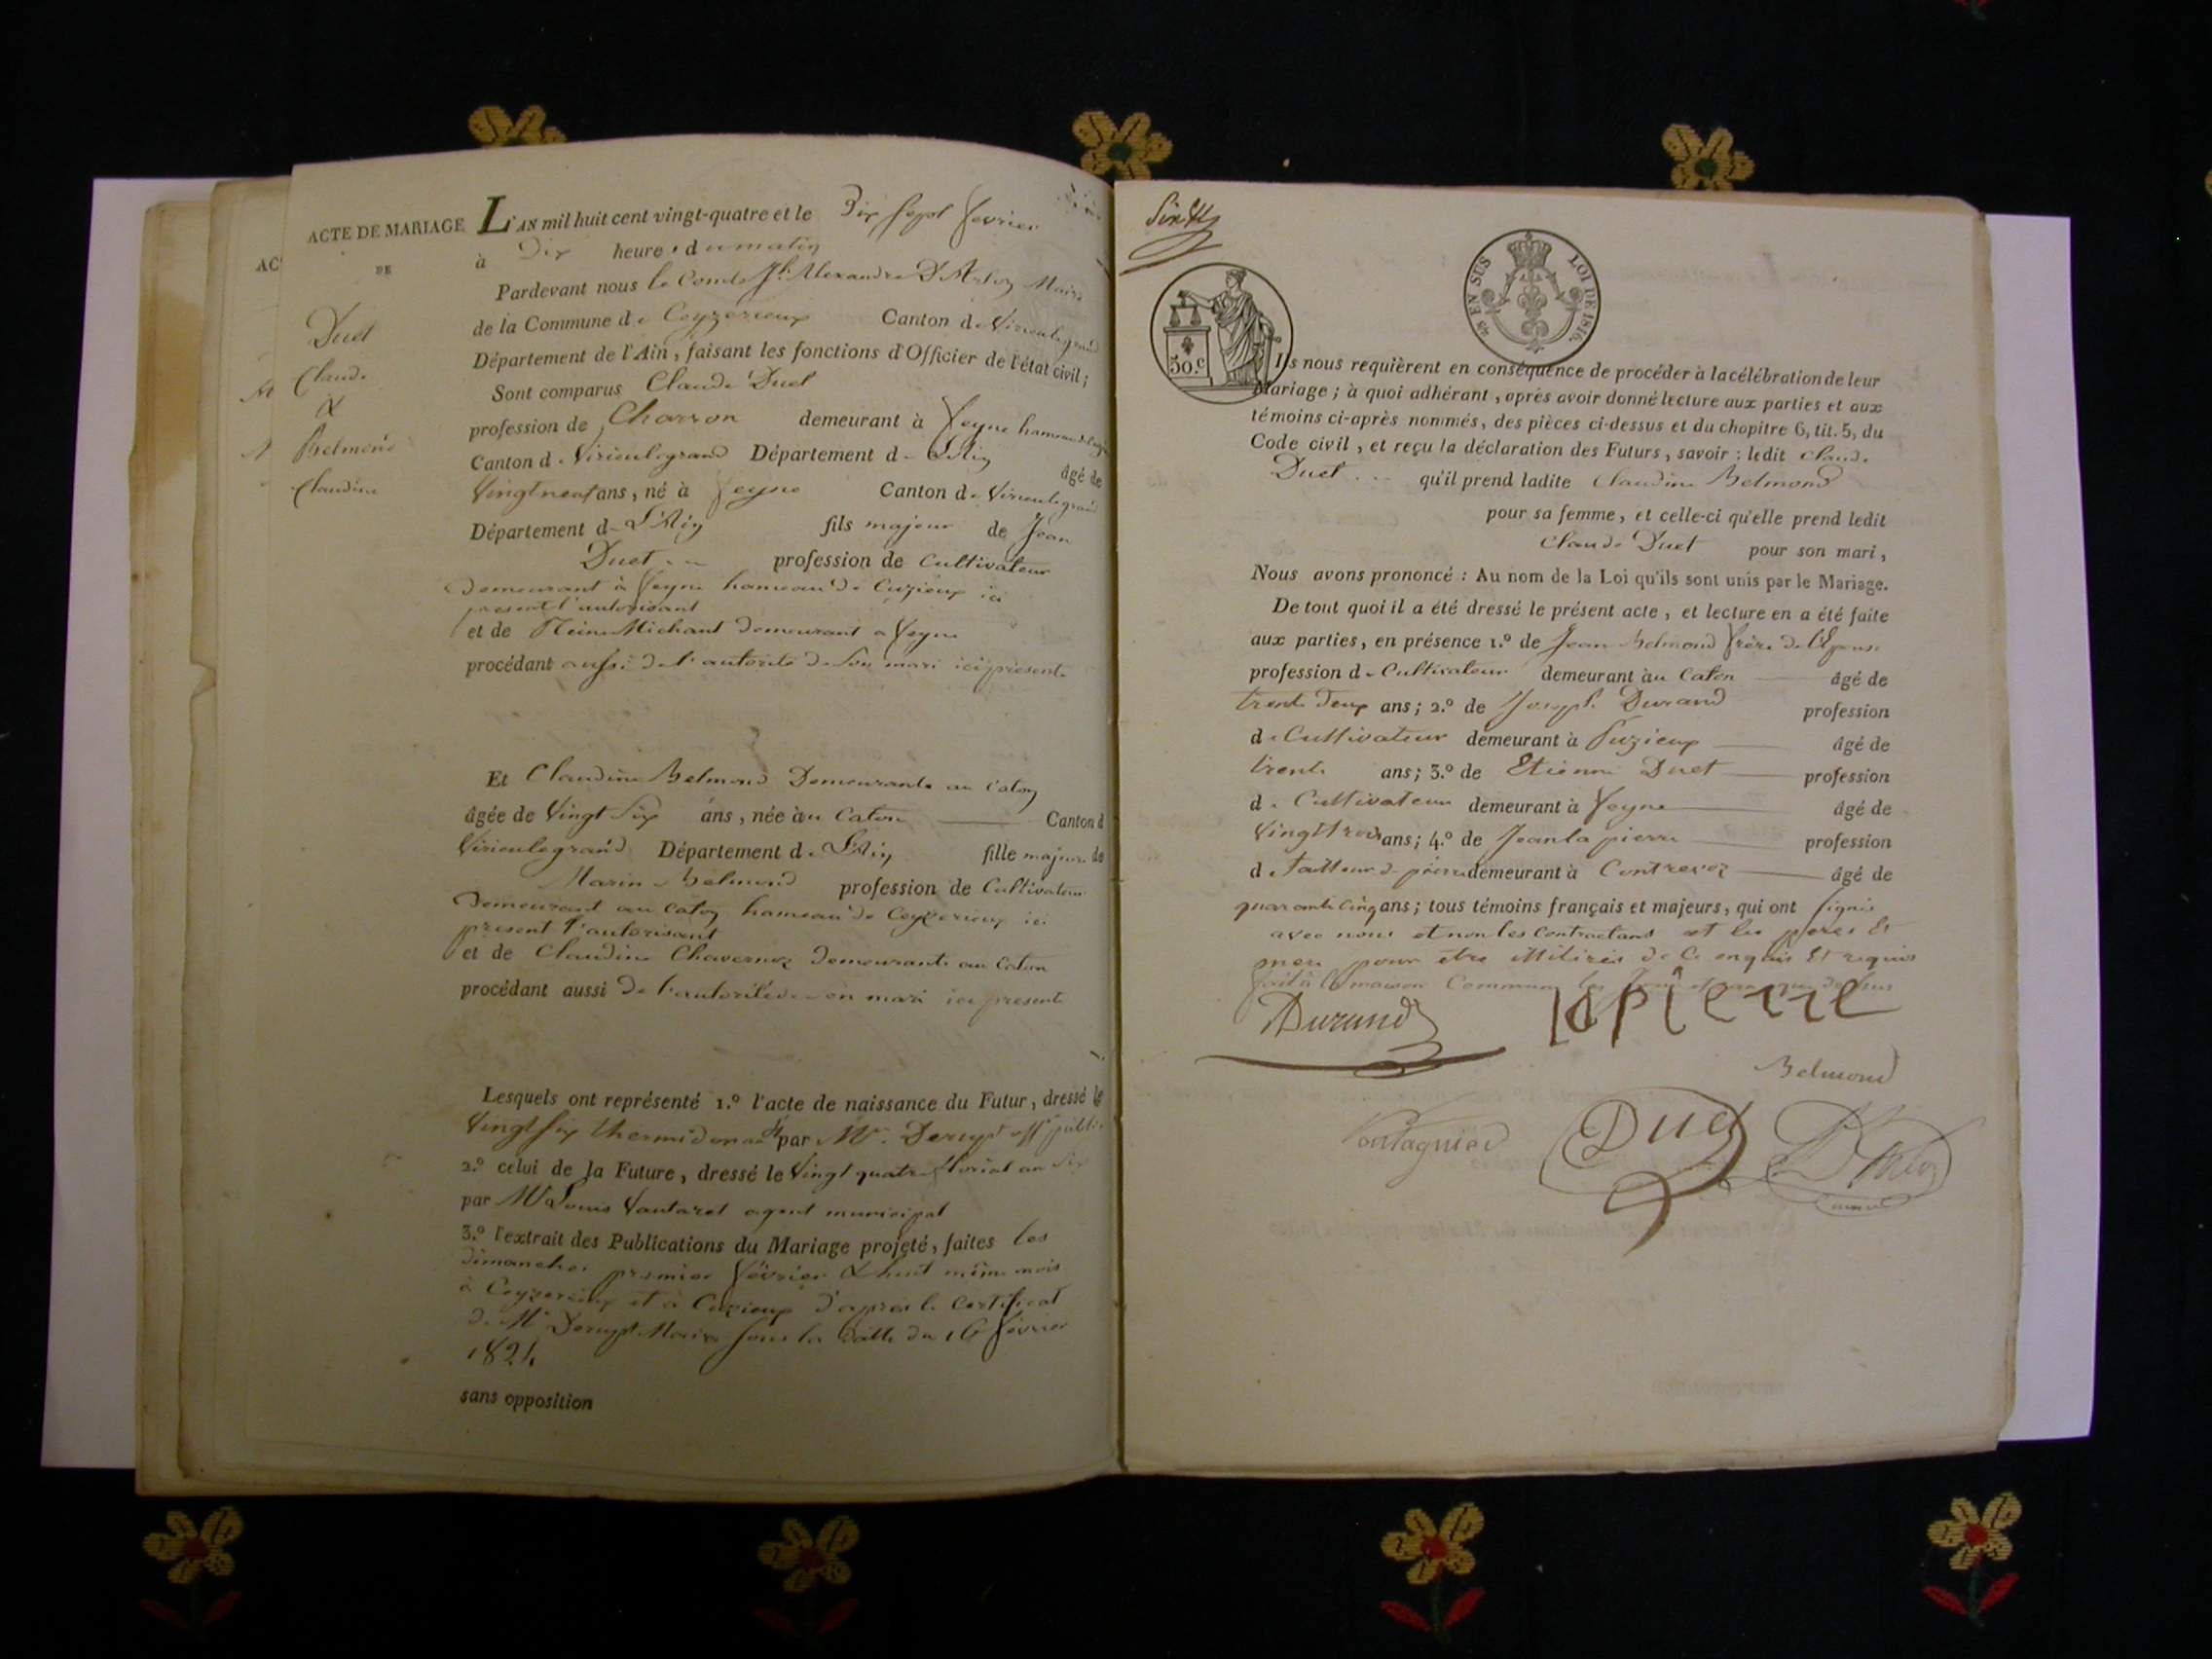 ACTE DE MARIAGE
DE
Duet
Claude
&
Belmond
Claudine
AC
L'AN mil huit cent vingt-quatre et le Dix sept fevrier
à Dix heures du matin
Pardevant nous le Comte Jh Alexandre D'Arloz Maire
de la Commune de Ceyzerieux Canton de Virieulegrand
Département de l'Ain, faisant les fonctions d'Officier de l'état civil;
Sont comparus Claude Duet
profession de Charron demeurant à Veyne hameau de
Canton de Virieulegrand Département de L'Ain âgé de
Vingt neuf ans, né à Veyne Canton de Virieulegrand
Département de L'Ain fils majeur de Jean
Duet profession de Cultivateur
Demeurant à Veyne hameau de Cuzieux ici
present l'autorisant
et de Reine Michaut demeurant a Veyne
procédant aussi de l'autorité de son mari ici présente
Et Claudine Belmond Demeurante au Caton
âgée de Vingt six ans, née à au Caton Canton d
Virieulegrand Département de L'Ain fille majeure de
Marin Belmond profession de Cultivateur
Demeurant au Caton hameau de Ceyzerieux ici
présent l'autorisant
et de Claudine Chavernoz Demeurante au Caton
procédant aussi De l'autorité de son mari ici presente
Lesquels ont représenté 1.º l'acte de naissance du Futur, dressé le
Vingt six thermidor an par Mr. Derupt offr public
2.º celui de la Future, dressé le Vingt quatre floréal an Six
par Mr Louis Vautaret agent municipal
3.º l'extrait des Publications du Mariage projeté, faites les
dimanches premier février & huit même mois
à Ceyzerieux et à Cuzieux d'après le Certificat
de Mr Derupt Maire sous la datte du 16 février
1824
sans opposition
50.c
EN SUS LOI DE 1816.
Ils nous requièrent en conséquence de procéder à la célébration de leur
Mariage; à quoi adhérant, après avoir donné lecture aux parties et aux
témoins ci-après nommés, des pièces ci-dessus et du chapitre 6, tit. 5, du
Code civil, et reçu la déclaration des Futurs, savoir : ledit Claude
Duet qu'il prend ladite Claudine Belmond
pour sa femme, et celle-ci qu'elle prend ledit
Claude Duet pour son mari,
Nous avons prononcé : Au nom de la Loi qu'ils sont unis par le Mariage.
De tout quoi il a été dressé le présent acte, et lecture en a été faite
aux parties, en présence 1.º de Jean Belmond frère de l'Epouse
profession de Cultivateur demeurant àu Caton âgé de
trente deux ans; 2.º de Joseph Durand profession
de Cultivateur demeurant à Cuzieux âgé de
trente ans; 3.º de Etienne Duet profession
de Cultivateur demeurant à Veyne âgé de
Vingt trois ans; 4.º de Jean lapierre profession
de tailleur de pierre demeurant à Contrevoz âgé de
quarante cinq ans; tous témoins français et majeurs, qui ont signé
avec nous et non les Contractans et les peres et
meres pour etre illitirés de ce enquis et requis
fait à la maison Commune les jour
Durand
lapierre
Belmond
Duet
D'Arloz